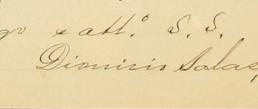 go & att.º S. S.
Dionicio Salas